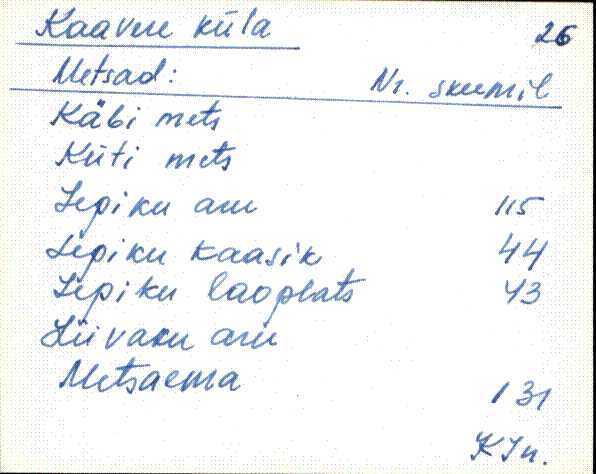 Kaavere küla 26
Metsad: Nr. skeemil
Käbi mets
Küti mets
Lepiku aru 115
Lepiku kaasik 44
Lepiku laoplats 43
Liivaku aru
Metsaema 131
KIn.